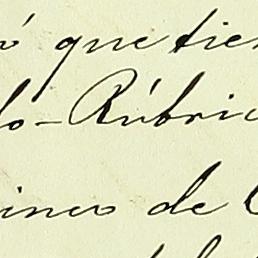 ó que tien
do - Rúbric
cinco de